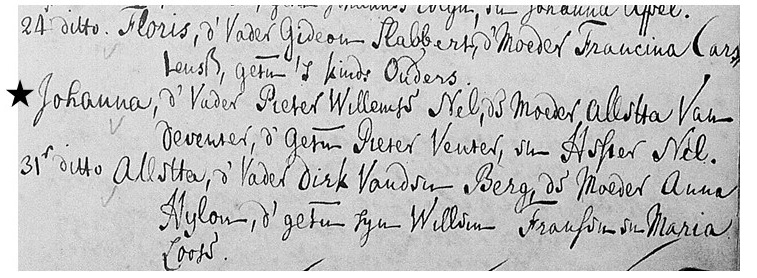 en Johanna Appel.
24 ditto. Floris, d' Vader Gideon Slabbert, d' Moeder Francina Cars
tensß, getūn 's kinds Ouders.
Johanna, d' Vader Pieter Willemsz Nel, ds Moeder Aletta Van
Deventer, d' Getūn Pieter Venter, en Hester Nel.
31' ditto Aletta, d' Vader Dirk Vanden Berg, ds Moeder Anna
d' getūn syn Willem Fransen en Maria
Loots.